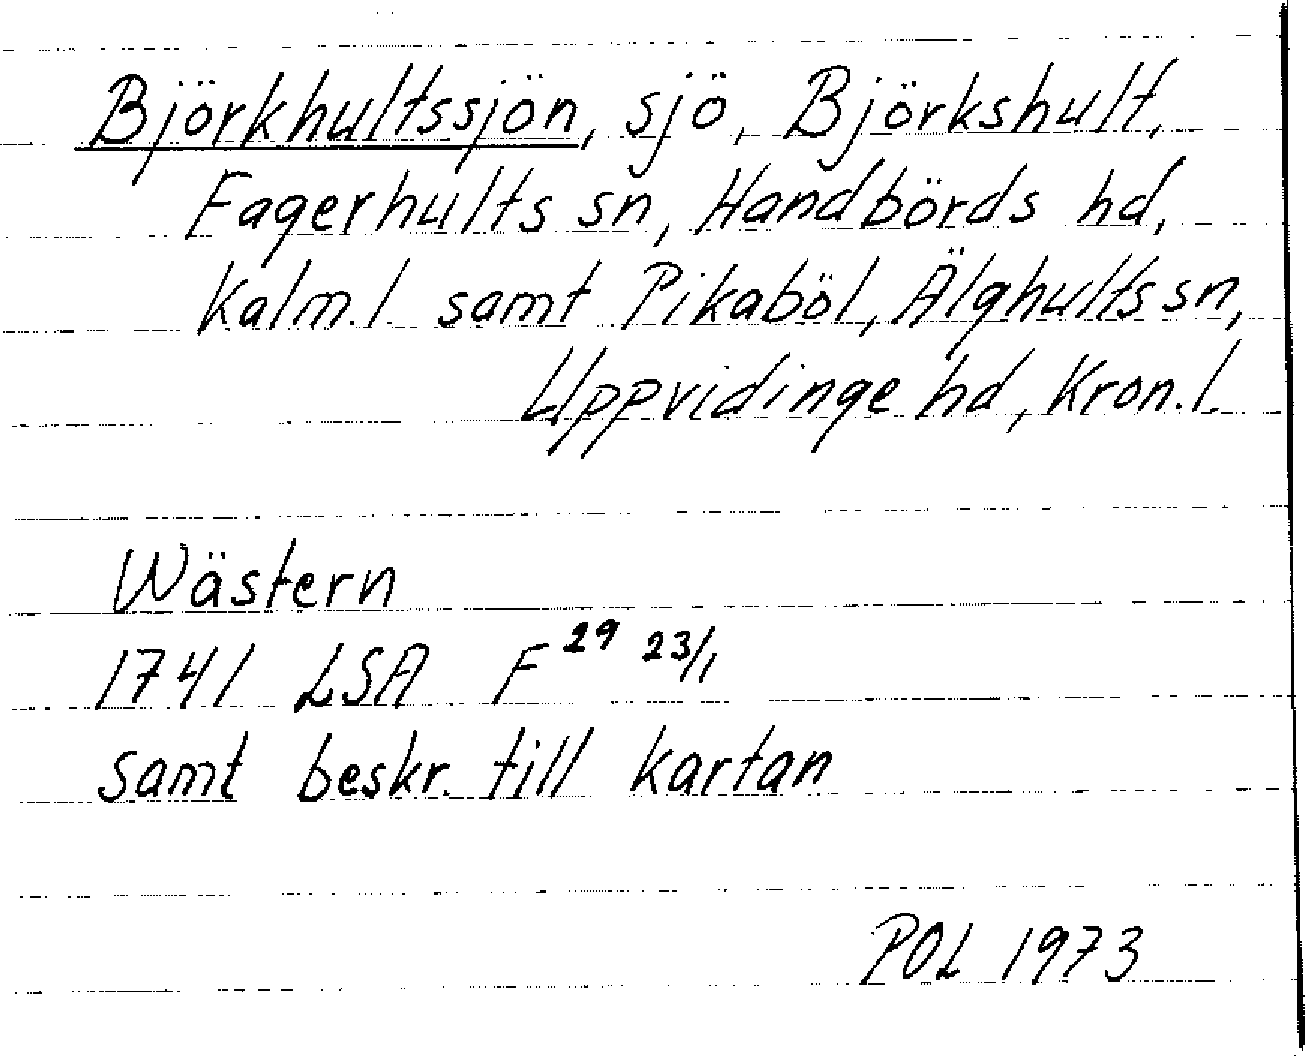 Björkhultssjön, sjö, Björkshult,
Fagerhults sn, Handbörds hd,
Kalm.l samt Pikaböl, Älghults sn,
Uppvidinge hd, Kron.l.
Wästern
1741 LSA F 29 23/1
samt beskr. till kartan
POL 1973